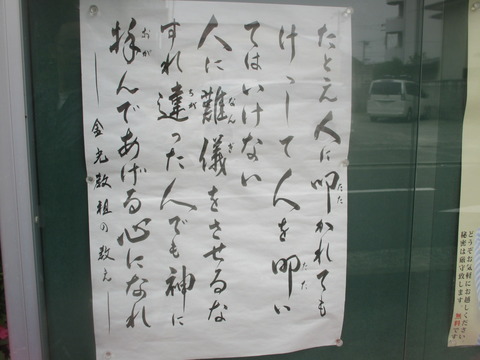 たとえ人に叩かれても
けっして人を叩い
てはいけない
人に難儀をさせるな
すれ違った人でも神に
拝んであげる心になれ
―金光教祖の教え―
どうぞお気軽にお越しください
秘密は厳守致します 無料です